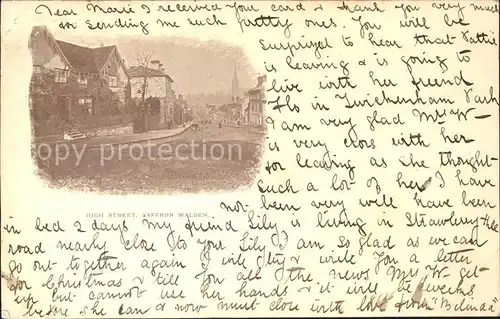 Dear Marie I received your card & thank you very much
for sending me such pretty ones. You will be
surprised to hear that Pattie
is leaving & is going to
live with her friend
Flo in Twickenham Park
I am very glad Mrs W—
is very cross with her
for leaving as she thought
such a lot of her I have
not been very well have been
in bed 2 days my friend Lily is living in Strawberry Hill
road nearly close to your Lily I am so glad as we can
go out together again I will try & write you a letter
for Christmas & tell you all the news Mrs W. get
up but cannot use her hands & it will be weeks
before she can & now must close with love from "Belinda"
HIGH STREET, SAFFRON WALDEN.
depositphotos